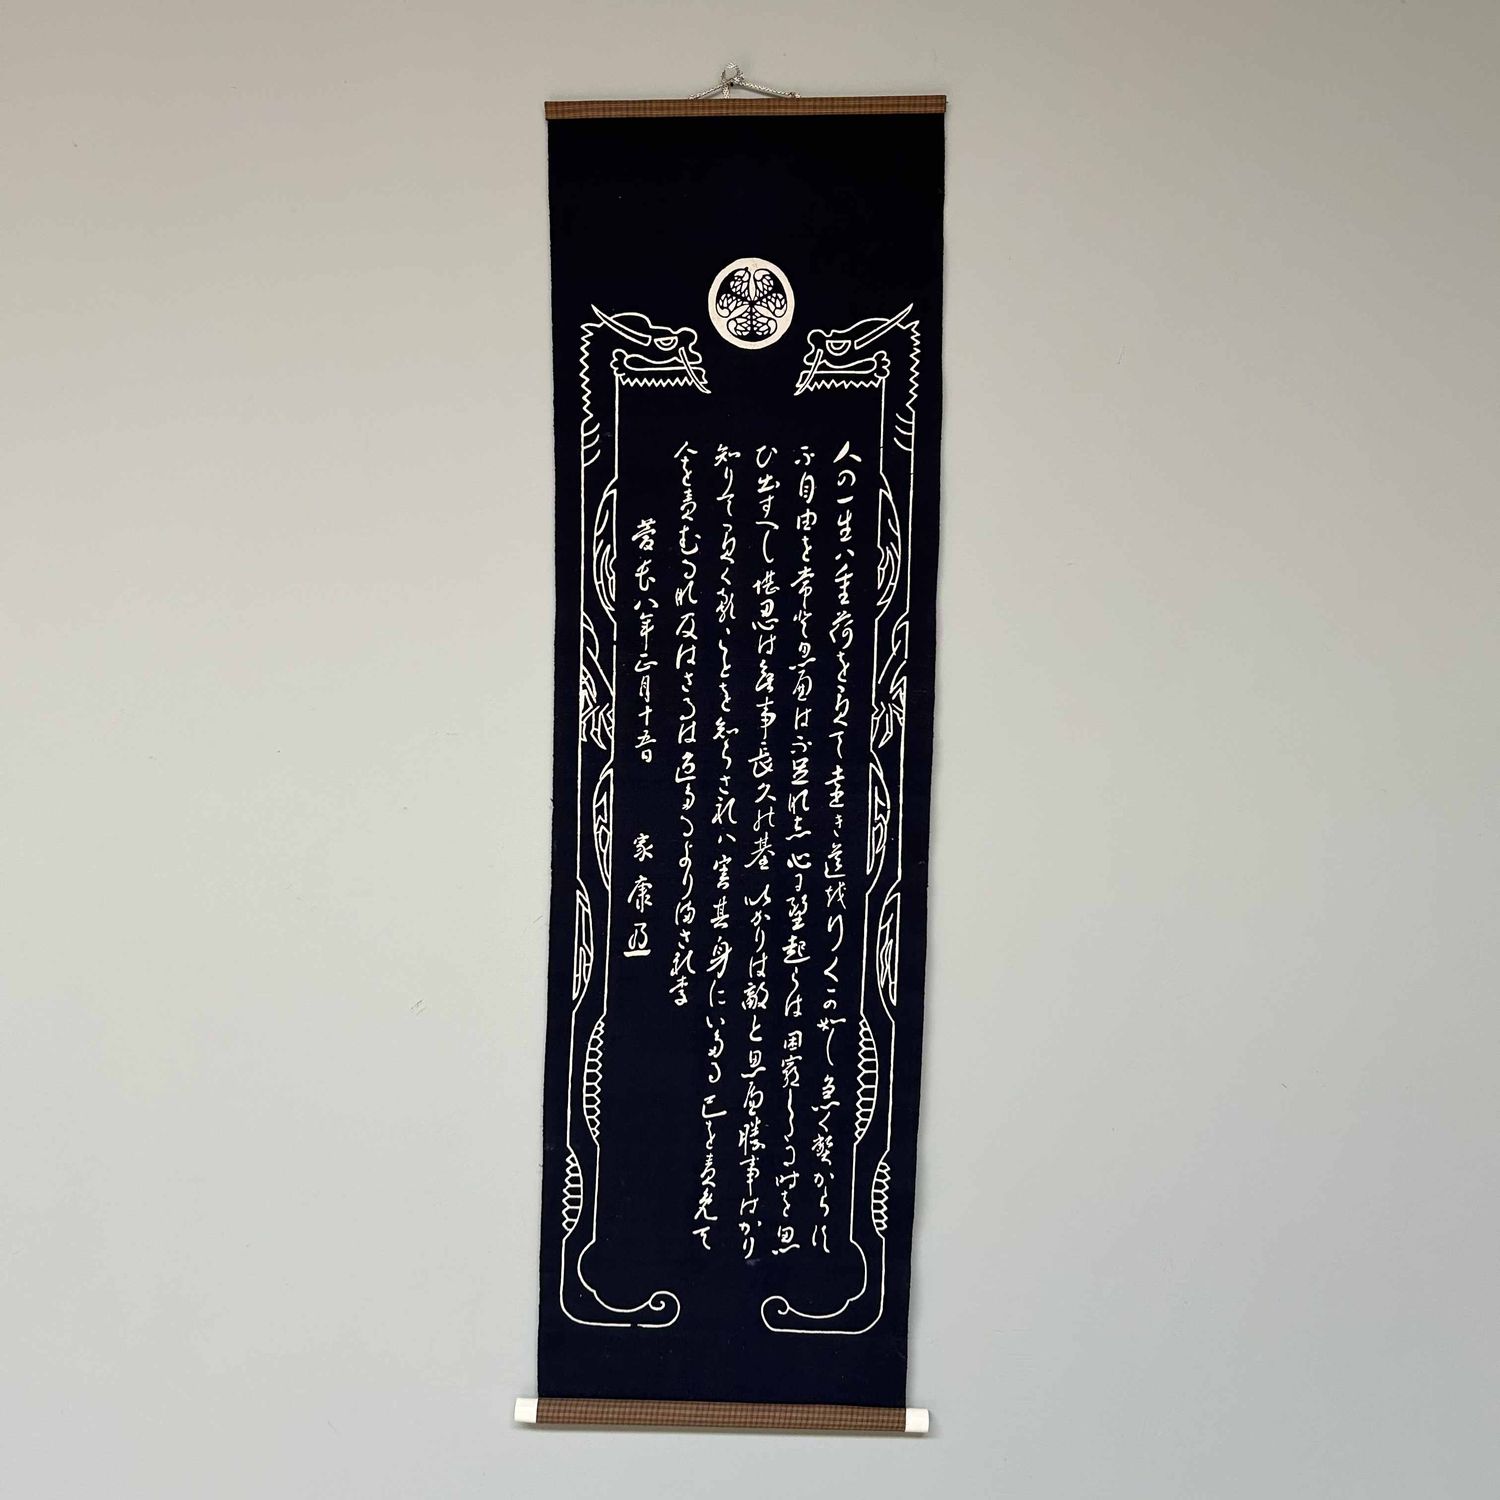 人の一生ハ重荷を負て遠き道越行くこの如し急く遍からす
不自由を常登思屋は不足那志心耳望起らは困窮したる時を思
ひ出すへし堪忍は無事長久の基いかりは敵と思屋勝事はかり
知りて負くることを知らされハ害其身にいたる己を責免て
人を責むる那及はさるは過たるよりまされ李
慶長八年正月十五日 家康